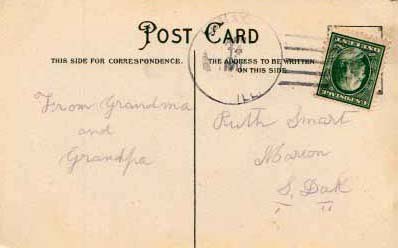 POST CARD
THIS SIDE FOR CORRESPONDENCE.
THE ADDRESS TO BE WRITTEN
ON THIS SIDE.
ILL.
From Grandma
and
Grandpa
Ruth Smart
Marion
S. Dak